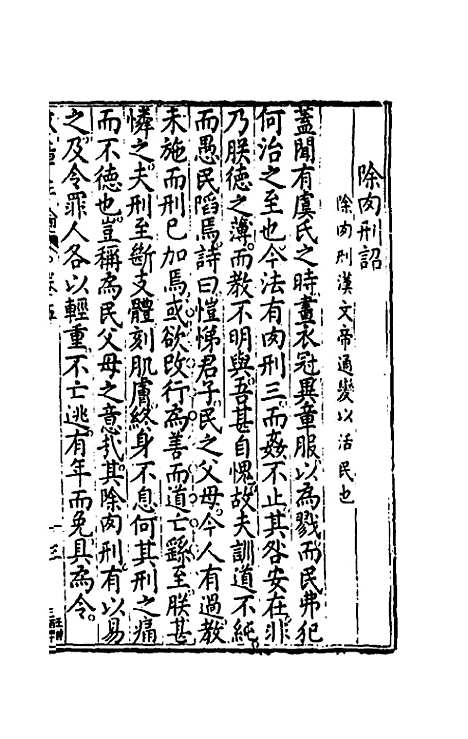 除肉刑詔
除肉刑漢文帝通變以活民也
蓋聞有虞氏之時畫衣冠異章服以為戮而民弗犯
何治之至也今法有肉刑三而姦不止其咎安在非
乃朕德之薄而教不明與吾甚自愧故夫訓道不純
而愚民陷焉詩曰愷悌君子民之父母今人有過教
未施而刑已加焉或欲改行為善而道亡繇至朕甚
憐之夫刑至斷支體刻肌膚終身不息何其刑之痛
而不德也豈稱為民父母之意哉其除肉刑有以易
之及令罪人各以輕重不亡逃有年而免具為令